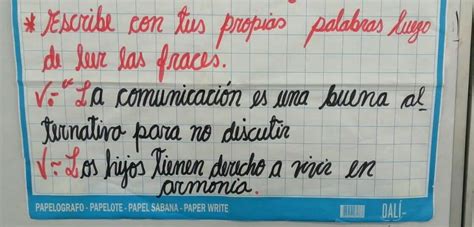 * Escribe con tus propias palabras luego
de leer las fraces.
√: "La comunicación es una buena al_
ternativa para no discutir
√: Los hijos tienen dercho a vivir en
armonía.
PAPELOGRAFO - PAPELOTE - PAPEL SABANA - PAPER WRITE
DALI